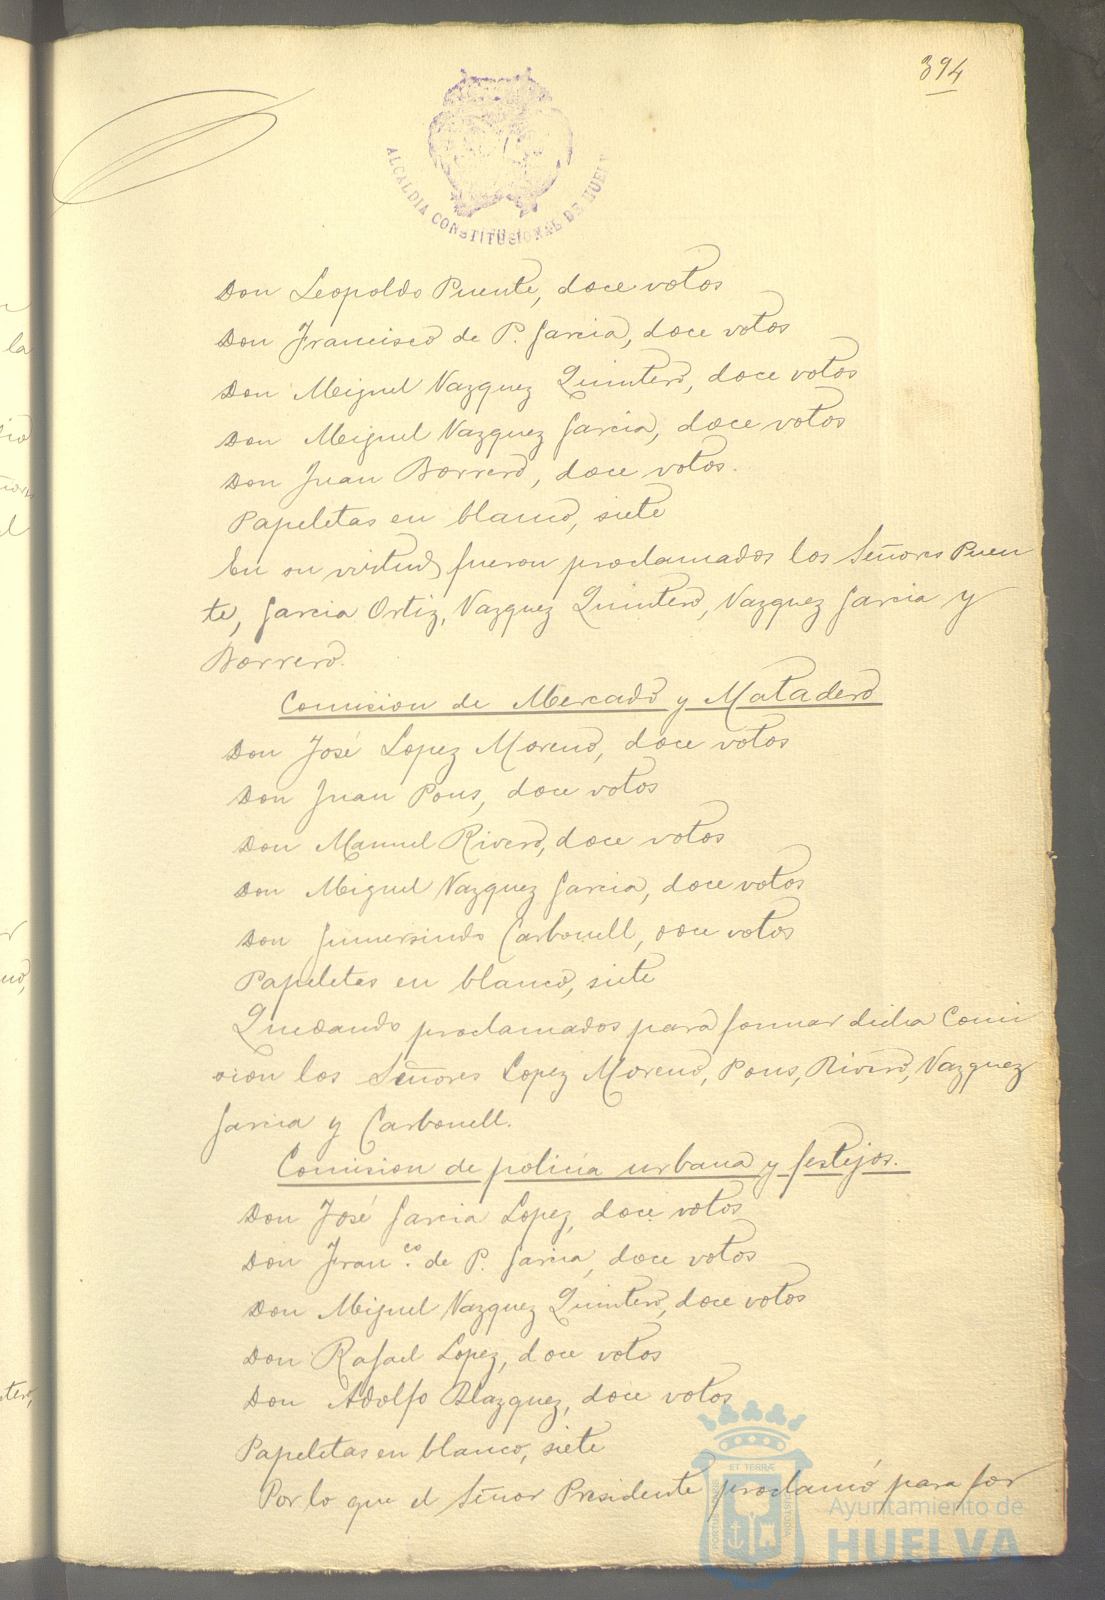 394
ALCALDIA CONSTITUCIONAL DE HUELVA
Don Leopoldo Puente, doce votos
Don Francisco de P. Garcia, doce votos
Don Miguel Vazquez Quintero, doce votos
Don Miguel Vazquez Garcia, doce votos
Don Juan Borrero, doce votos.
Papeletas en blanco, siete
En su virtud fueron proclamados los Señores Puen
te, Garcia Ortiz, Vazquez Quintero, Vazquez Garcia y
Borrero.
Comision de Mercado y Matadero
Don José Lopez Moreno, doce votos
Don Juan Pons, doce votos
Don Manuel Rivero, doce votos
Don Miguel Vazquez Garcia, doce votos
Don Gumersindo Carbonell, doce votos
Papeletas en blanco, siete
Quedando proclamados para formar dicha Comi
sion los Señores Lopez Moreno, Pons, Rivero, Vazquez
Garcia y Carbonell.
Comision de policia urbana y festejos.
Don José Garcia Lopez, doce votos
Don Fran.co de P. Garcia, doce votos
Don Miguel Vazquez Quintero, doce votos
Don Rafael Lopez, doce votos
Don Adolfo Blazquez, doce votos
Papeletas en blanco, siete
Por lo que el Señor Presidente proclamó para for
PORTUS MARIS ET TERRÆ CUSTODIA
Ayuntamiento de
HUELVA